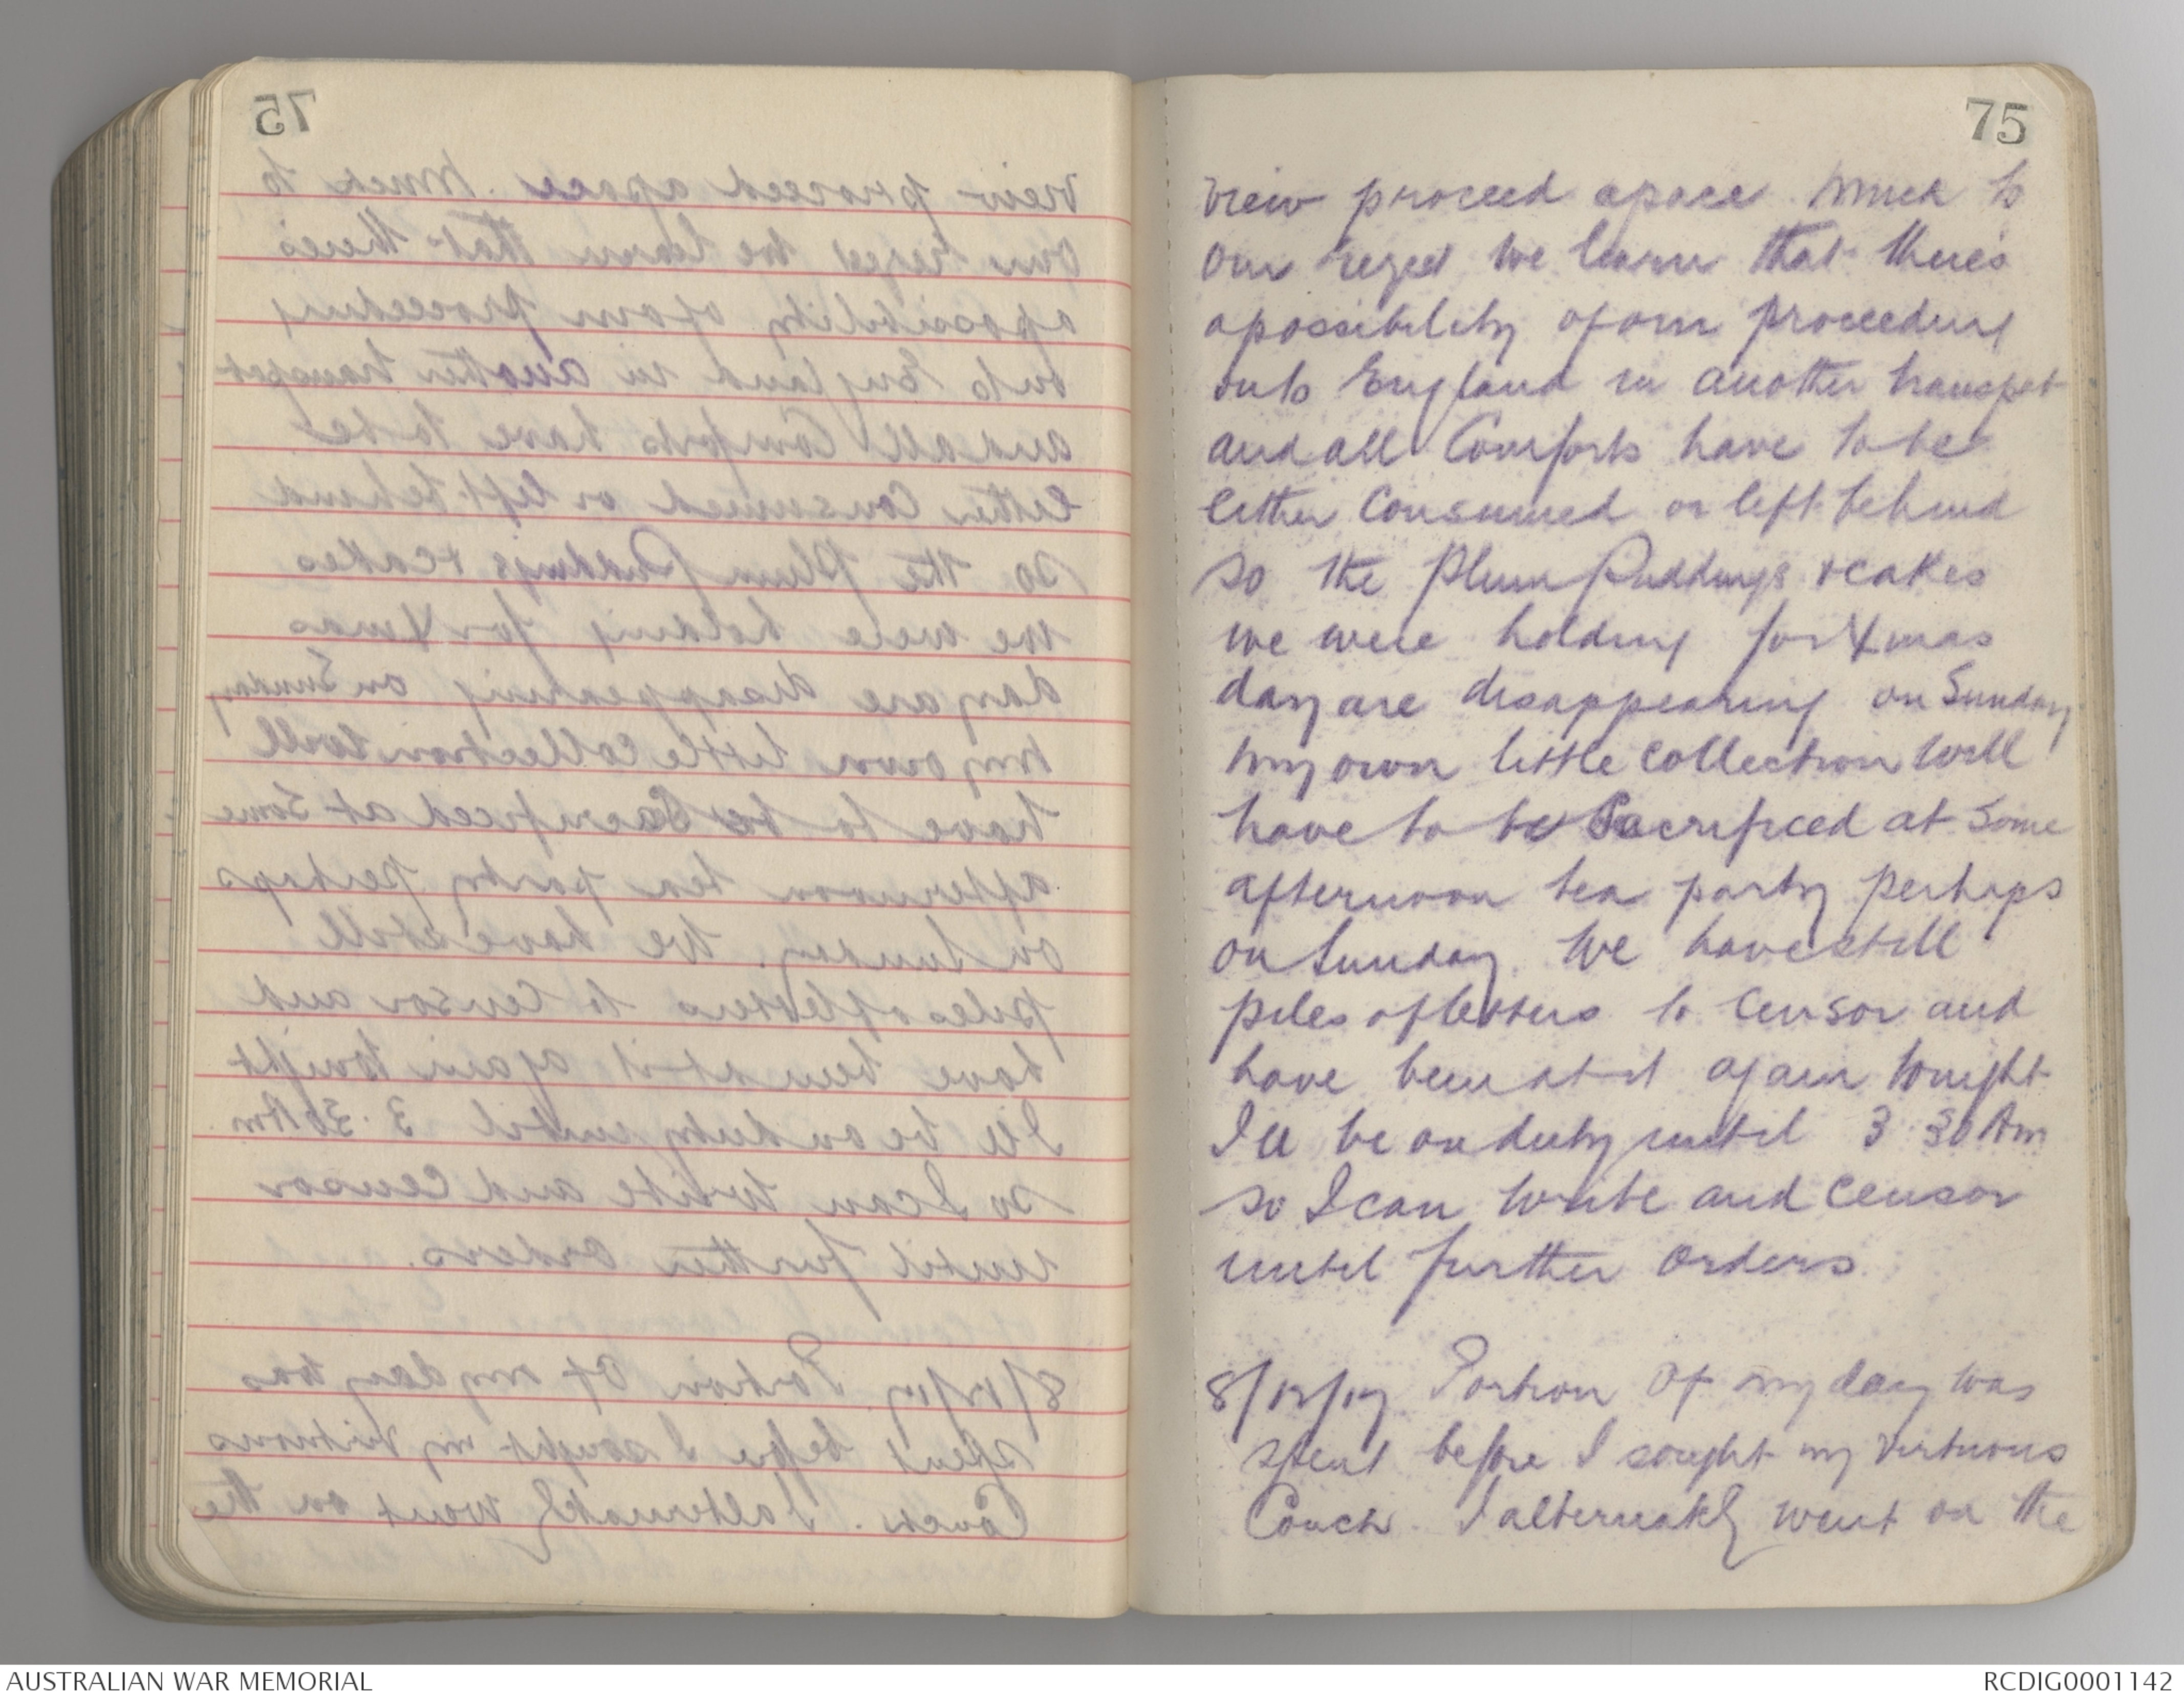 75
view proceed apace. Much to
our regret we learn that there's
a possibility of our proceeding
onto England in another transport
and all Comforts have to be
either Consumed or left behind
so the Plum Puddings & cakes
we were holding for Xmas
day are disappearing on Sunday
my own little collection will
have to be Sacrificed at Some
afternoon tea party perhaps
on Sunday. We have still
piles of letters to Censor and
have been at it again tonight
I'll be on duty until 3.30 Am
so I can write and censor
until further orders.
8/12/17. Portion Of my day was
spent before I sought my virtuous
Couch. I alternately went on the
AUSTRALIAN WAR MEMORIAL
RCDIG0001142